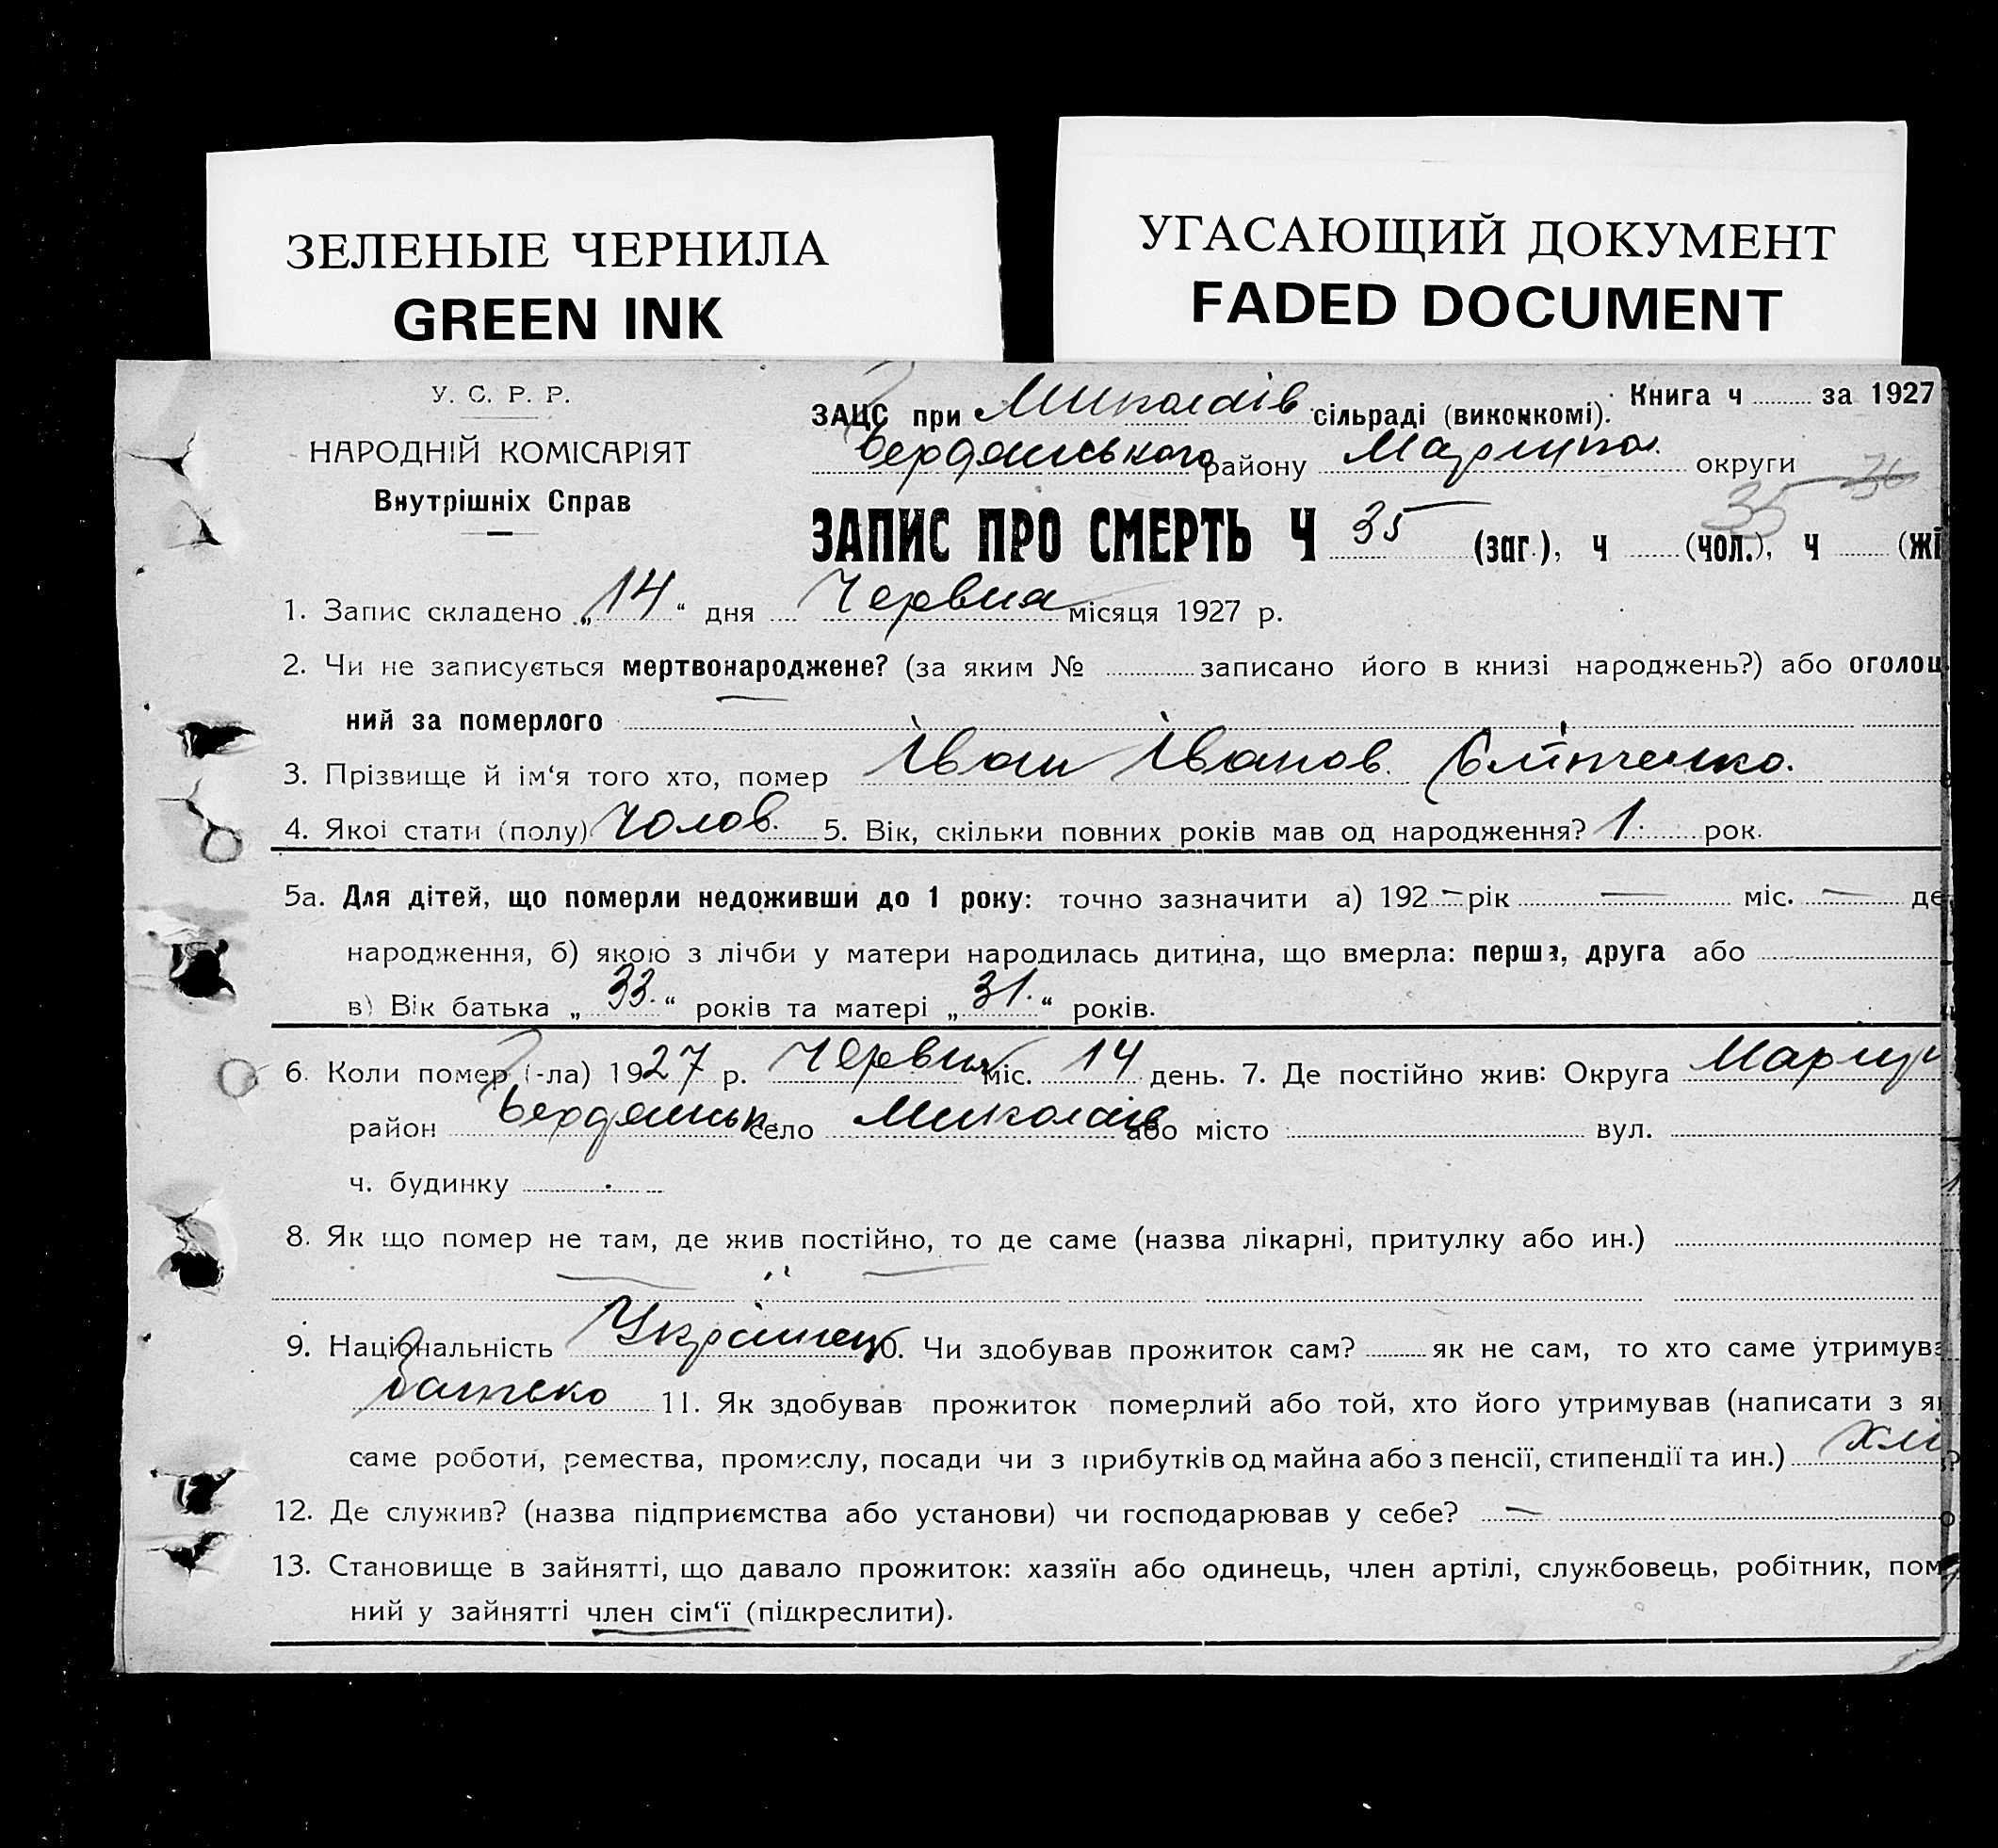 ЗЕЛЕНЫЕ ЧЕРНИЛА
GREEN INK
УГАСАЮЩИЙ ДОКУМЕНТ
FADED DOCUMENT
У. С. Р. Р.
НАРОДНІЙ КОМІСАРІЯТ
Внутрішніх Справ
Книга ч за 1927
ЗАЦС при Миколаїв сільраді (виконкомі).
Бердянського району Маріупол. округи
35 36
ЗАПИС ПРО СМЕРТЬ Ч 35 (заг.), ч (чол.), ч (жі
1. Запис складено „14“ дня Червня місяця 1927 р.
2. Чи не записується мертвонароджене? (за яким № записано його в книзі народжень?) або оголош
ний за померлого
3. Прізвище й ім‘я того хто, помер Іван Іванов.
4. Якої стати (полу) Чолов. 5. Вік, скільки повних років мав од народження? 1 рок.
5а. Для дітей, що померли недоживши до 1 року: точно зазначити а) 192– рік — міс. — де
народження, б) якою з лічби у матери народилась дитина, що вмерла: перша, друга або
в) Вік батька „33.“ років та матері „31.“ років.
6. Коли помер (-ла) 1927 р. Червня міс. 14 день. 7. Де постійно жив: Округа Маріуп
район Бердянськ. село Миколаїв або місто вул.
ч. будинку
8. Як що помер не там, де жив постійно, то де саме (назва лікарні, притулку або ин.)
9. Національність Українець 10. Чи здобував прожиток сам? як не сам, то хто саме утримува
батько 11. Як здобував прожиток померлий або той, хто його утримував (написати з як
саме роботи, ремества, промислу, посади чи з прибутків од майна або з пенсії, стипендії та ин.) хлі
12. Де служив? (назва підприємства або установи) чи господарював у себе? —
13. Становище в зайнятті, що давало прожиток: хазяїн або одинець, член артілі, службовець, робітник, пом
ний у зайнятті член сім‘ї (підкреслити).